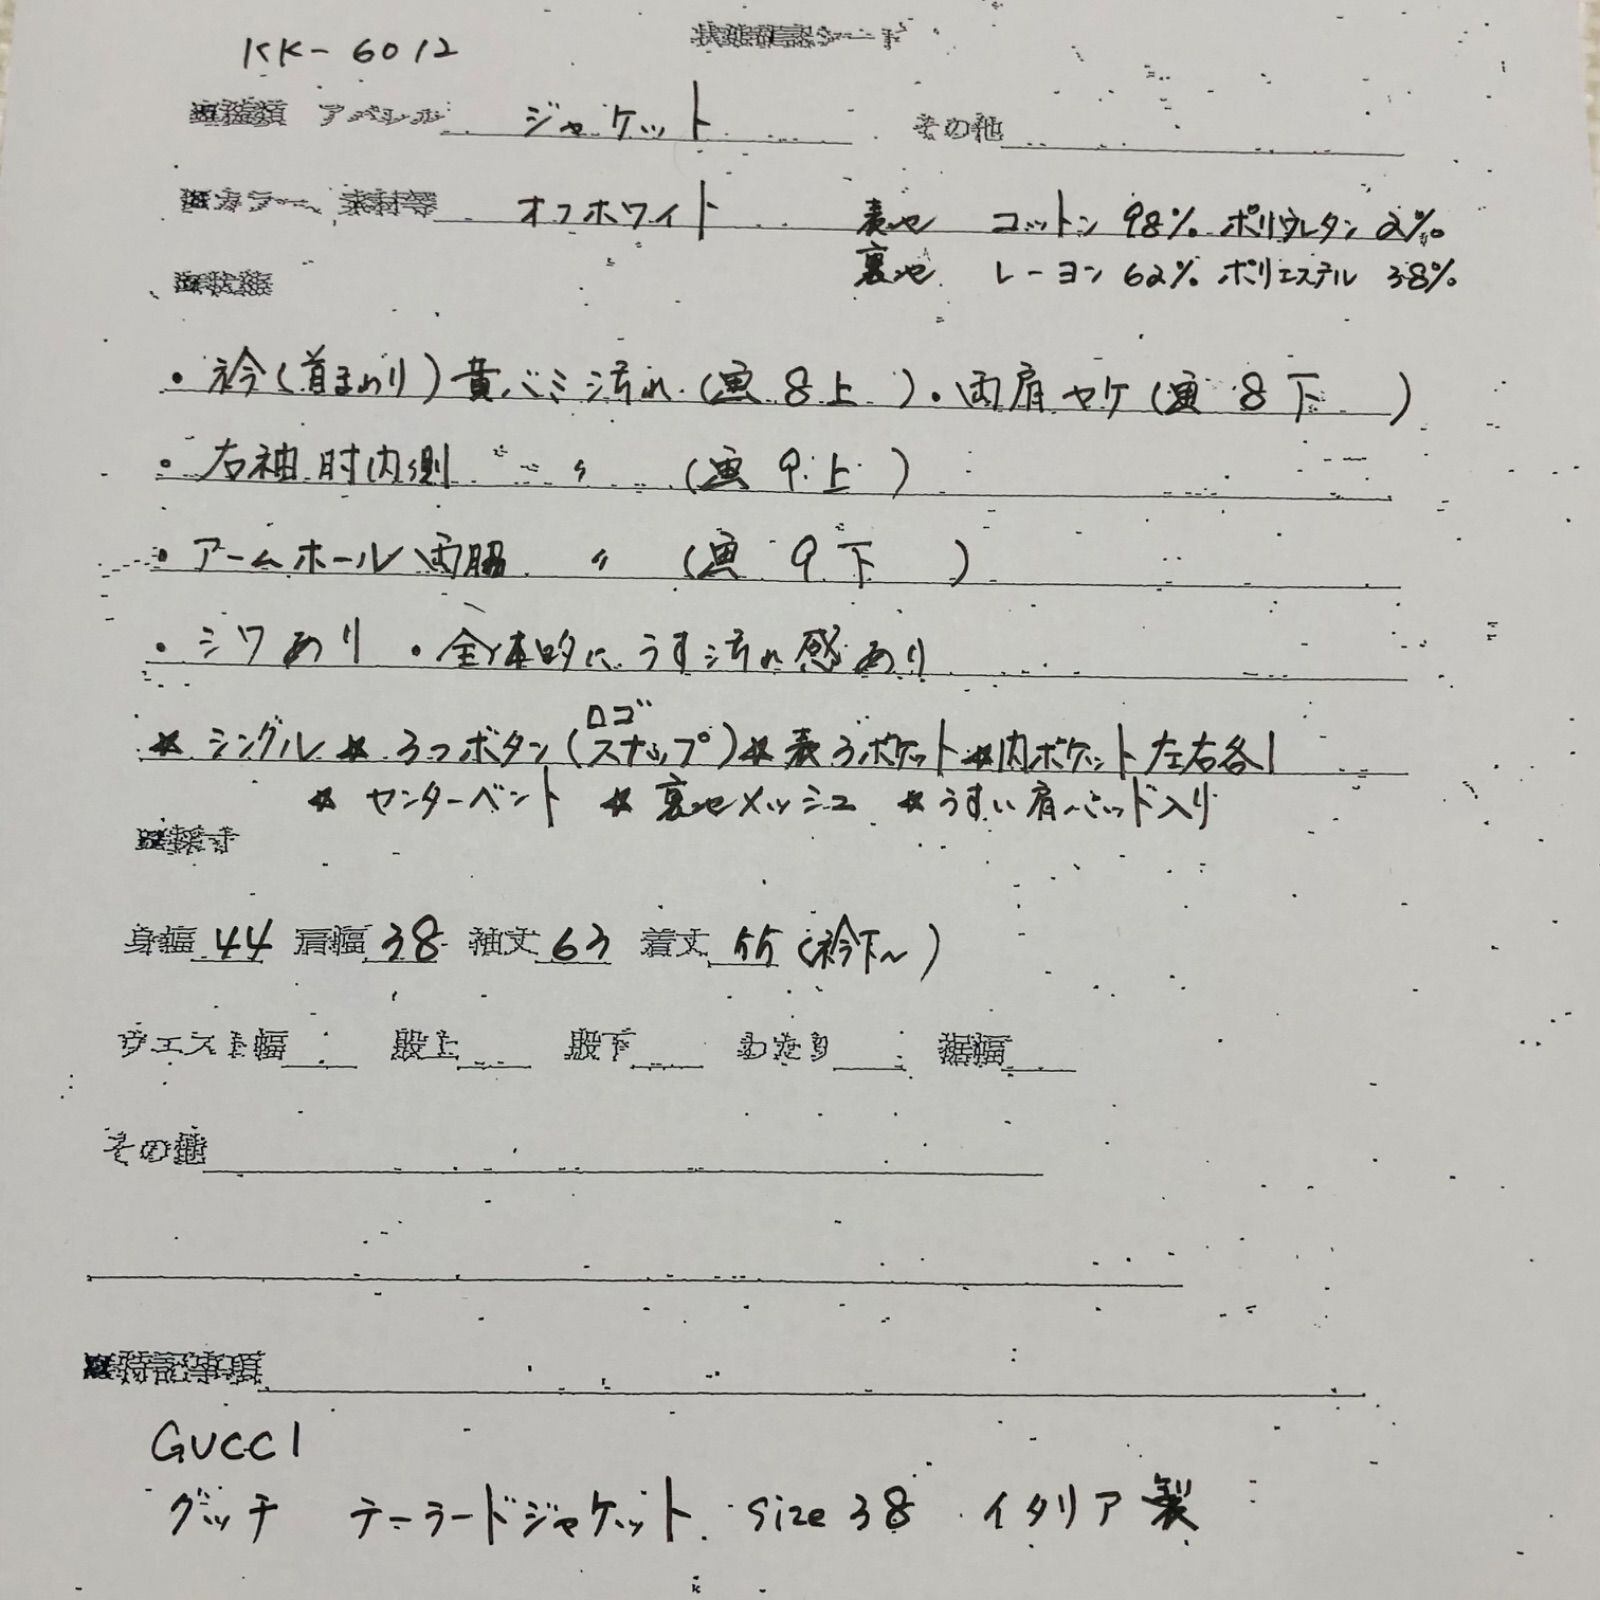 KK-6012
状態確認シート
■種類 アパレル ジャケット その他
■カラー、素材等 オフホワイト 表地 コットン 98% ポリウレタン 2%
裏地 レーヨン 62% ポリエステル 38%
■状態
・衿(首まわり)黄バミ汚れ(画 8上)・両肩ヤケ(画 8下)
・右袖肘内側 〃 (画 9上)
・アームホール両脇 〃 (画 9下)
・シワあり ・全体的にうす汚れ感あり
ロゴ
★シングル★3つボタン(スナップ)★表3ポケット★内ポケット左右各1
★センターベント ★裏地メッシュ ★うすい肩パッド入り
■採寸
身幅 44 肩幅 38 袖丈 63 着丈 55(衿下~)
ウエスト幅 股上 股下 わたり 裾幅
その他
■特記事項
GUCCI
グッチ テーラードジャケット size 38 イタリア製